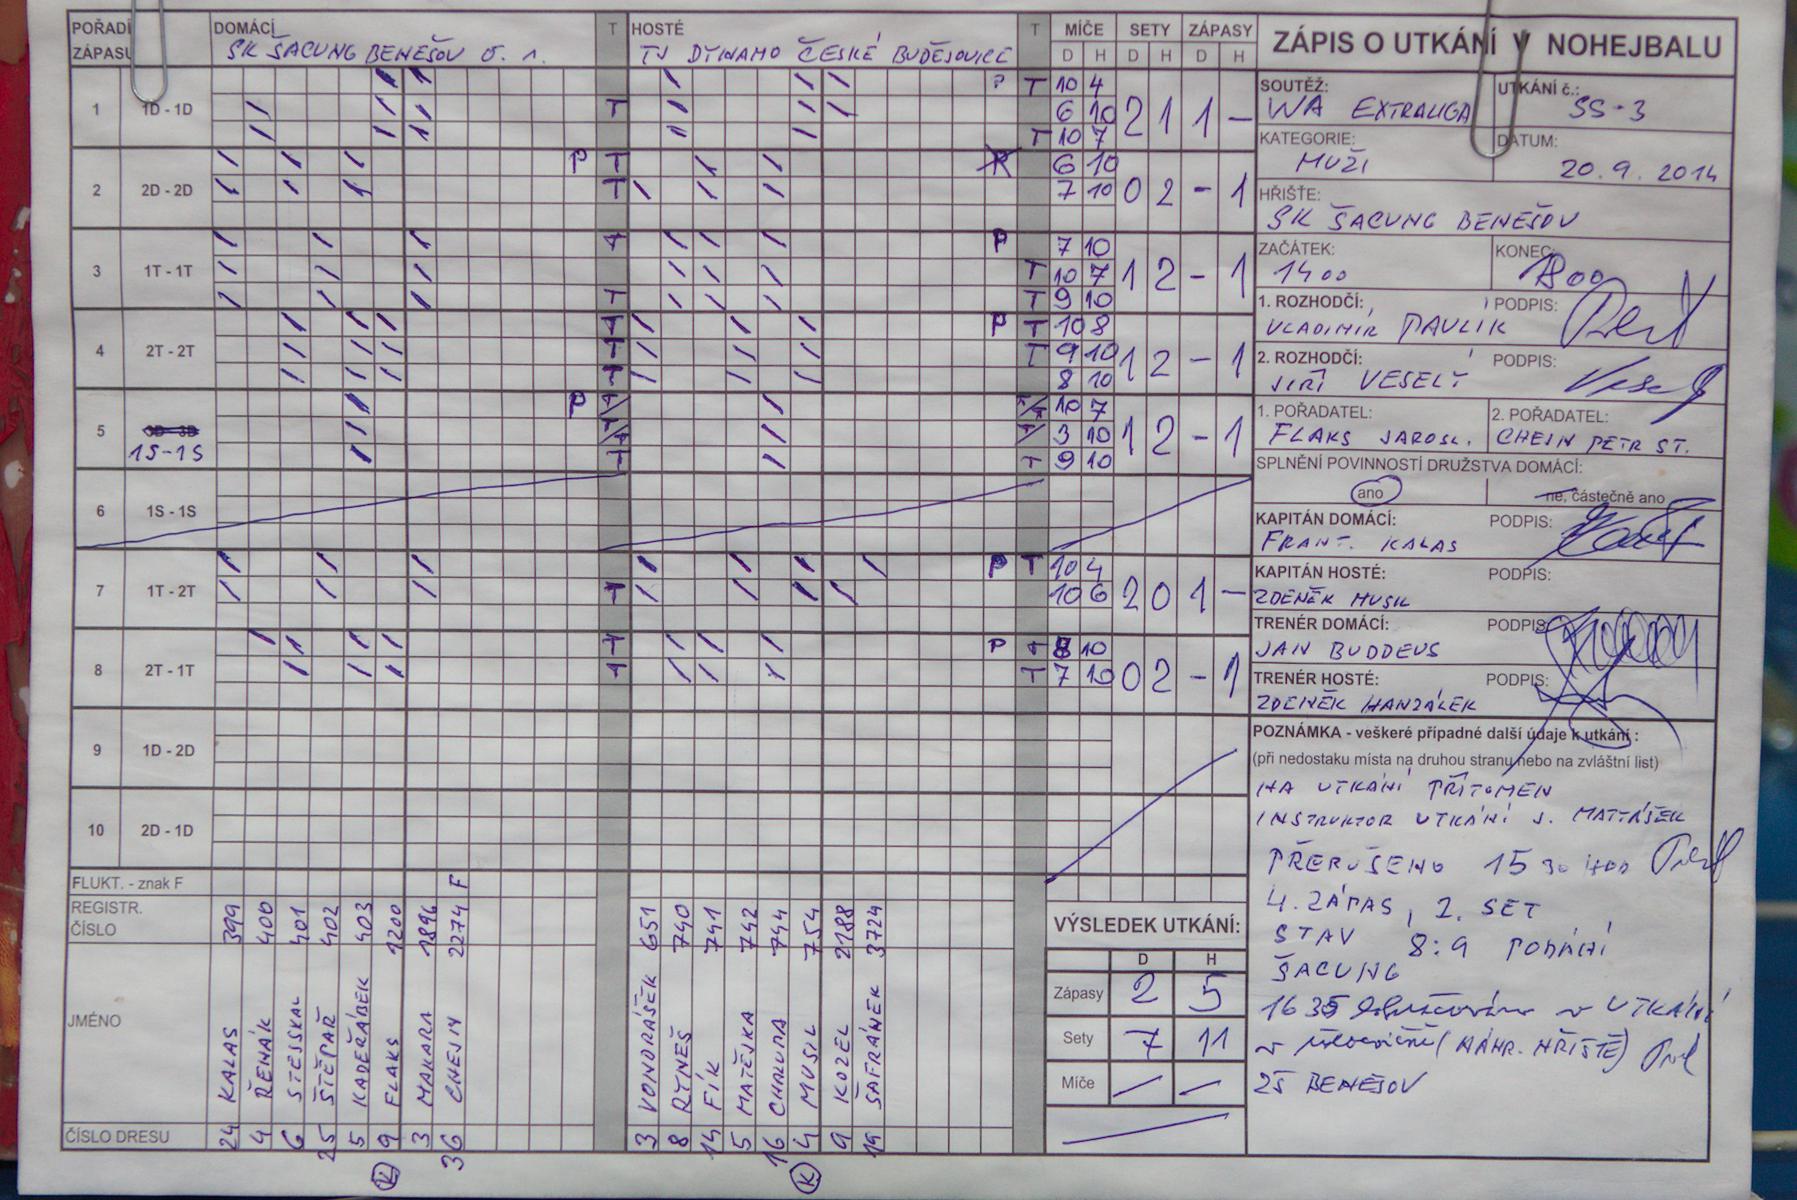 POŘADÍ ZÁPASU
DOMÁCÍ
SK ŠACUNG BENEŠOV O. 1.
T
HOSTÉ
TJ DYNAMO ČESKÉ BUDĚJOVICE
T
MÍČE SETY ZÁPASY
D H D H D H
1 1D - 1D T P T 10 4
6 10
T 10 7
2 1 1 -
2 2D - 2D P T 6 10
T 7 10
0 2 - 1
3 1T - 1T T P 7 10
T 10 7
T T 9 10
1 2 - 1
4 2T - 2T T P T 10 8
T T 9 10
T 8 10
1 2 - 1
5 1S-1S P 10 7
3 10
T T 9 10
1 2 - 1
6 1S - 1S
7 1T - 2T P T 10 4
T 10 6
2 0 1 -
8 2T - 1T T P T 8 10
T T 7 10
0 2 - 1
9 1D - 2D
10 2D - 1D
FLUKT. - znak F F
REGISTR. ČÍSLO
399 400 401 402 403 1200 1896 2274
651 740 741 742 744 754 2188 3724
JMÉNO
KALAS ŘENAÍK STEJSKAL ŠTĚPAŘ KADEŘÁBEK FLAKS MAKARA CHEJN
VONDRÁŠEK RYNEŠ FÍK MATĚJKA CHALUPA MUSIL KOZEL ŠAFRÁNEK
ČÍSLO DRESU
24 4 6 25 5 9 3 36
3 8 14 5 16 4 9 19
K K
VÝSLEDEK UTKÁNÍ:
D H
Zápasy 2 5
Sety 7 11
Míče
ZÁPIS O UTKÁNÍ V NOHEJBALU
SOUTĚŽ: UTKÁNÍ č.:
WA EXTRALIGA SS-3
KATEGORIE: DATUM:
MUŽI 20.9.2014
HŘIŠTĚ:
SK ŠACUNG BENEŠOV
ZAČÁTEK: KONEC:
1400 1800
1. ROZHODČÍ: PODPIS:
VLADIMÍR PAVLIK
2. ROZHODČÍ: PODPIS:
JIŘÍ VESELÝ
1. POŘADATEL: 2. POŘADATEL:
FLAKS JAROSL. CHEJN PETR ST.
SPLNĚNÍ POVINNOSTÍ DRUŽSTVA DOMÁCÍ:
ano ne, částečně ano
KAPITÁN DOMÁCÍ: PODPIS:
FRANT. KALAS
KAPITÁN HOSTÉ: PODPIS:
ZDENĚK MUSIL
TRENÉR DOMÁCÍ: PODPIS:
JAN BUDDEUS
TRENÉR HOSTÉ: PODPIS:
ZDENĚK HANZÁLEK
POZNÁMKA - veškeré případné další údaje k utkání :
(při nedostaku místa na druhou stranu nebo na zvláštní list)
NA UTKÁNÍ PŘÍTOMEN
INSTRUKTOR UTKÁNÍ J. MATTÁŠEK
PŘERUŠENO 15 30 HOD
4. ZÁPAS, 2. SET
STAV 8:9 PODÁNÍ
ŠACUNG
16 35 UTKÁNÍ
(NÁHR. HŘIŠTĚ)
ZŠ BENEŠOV